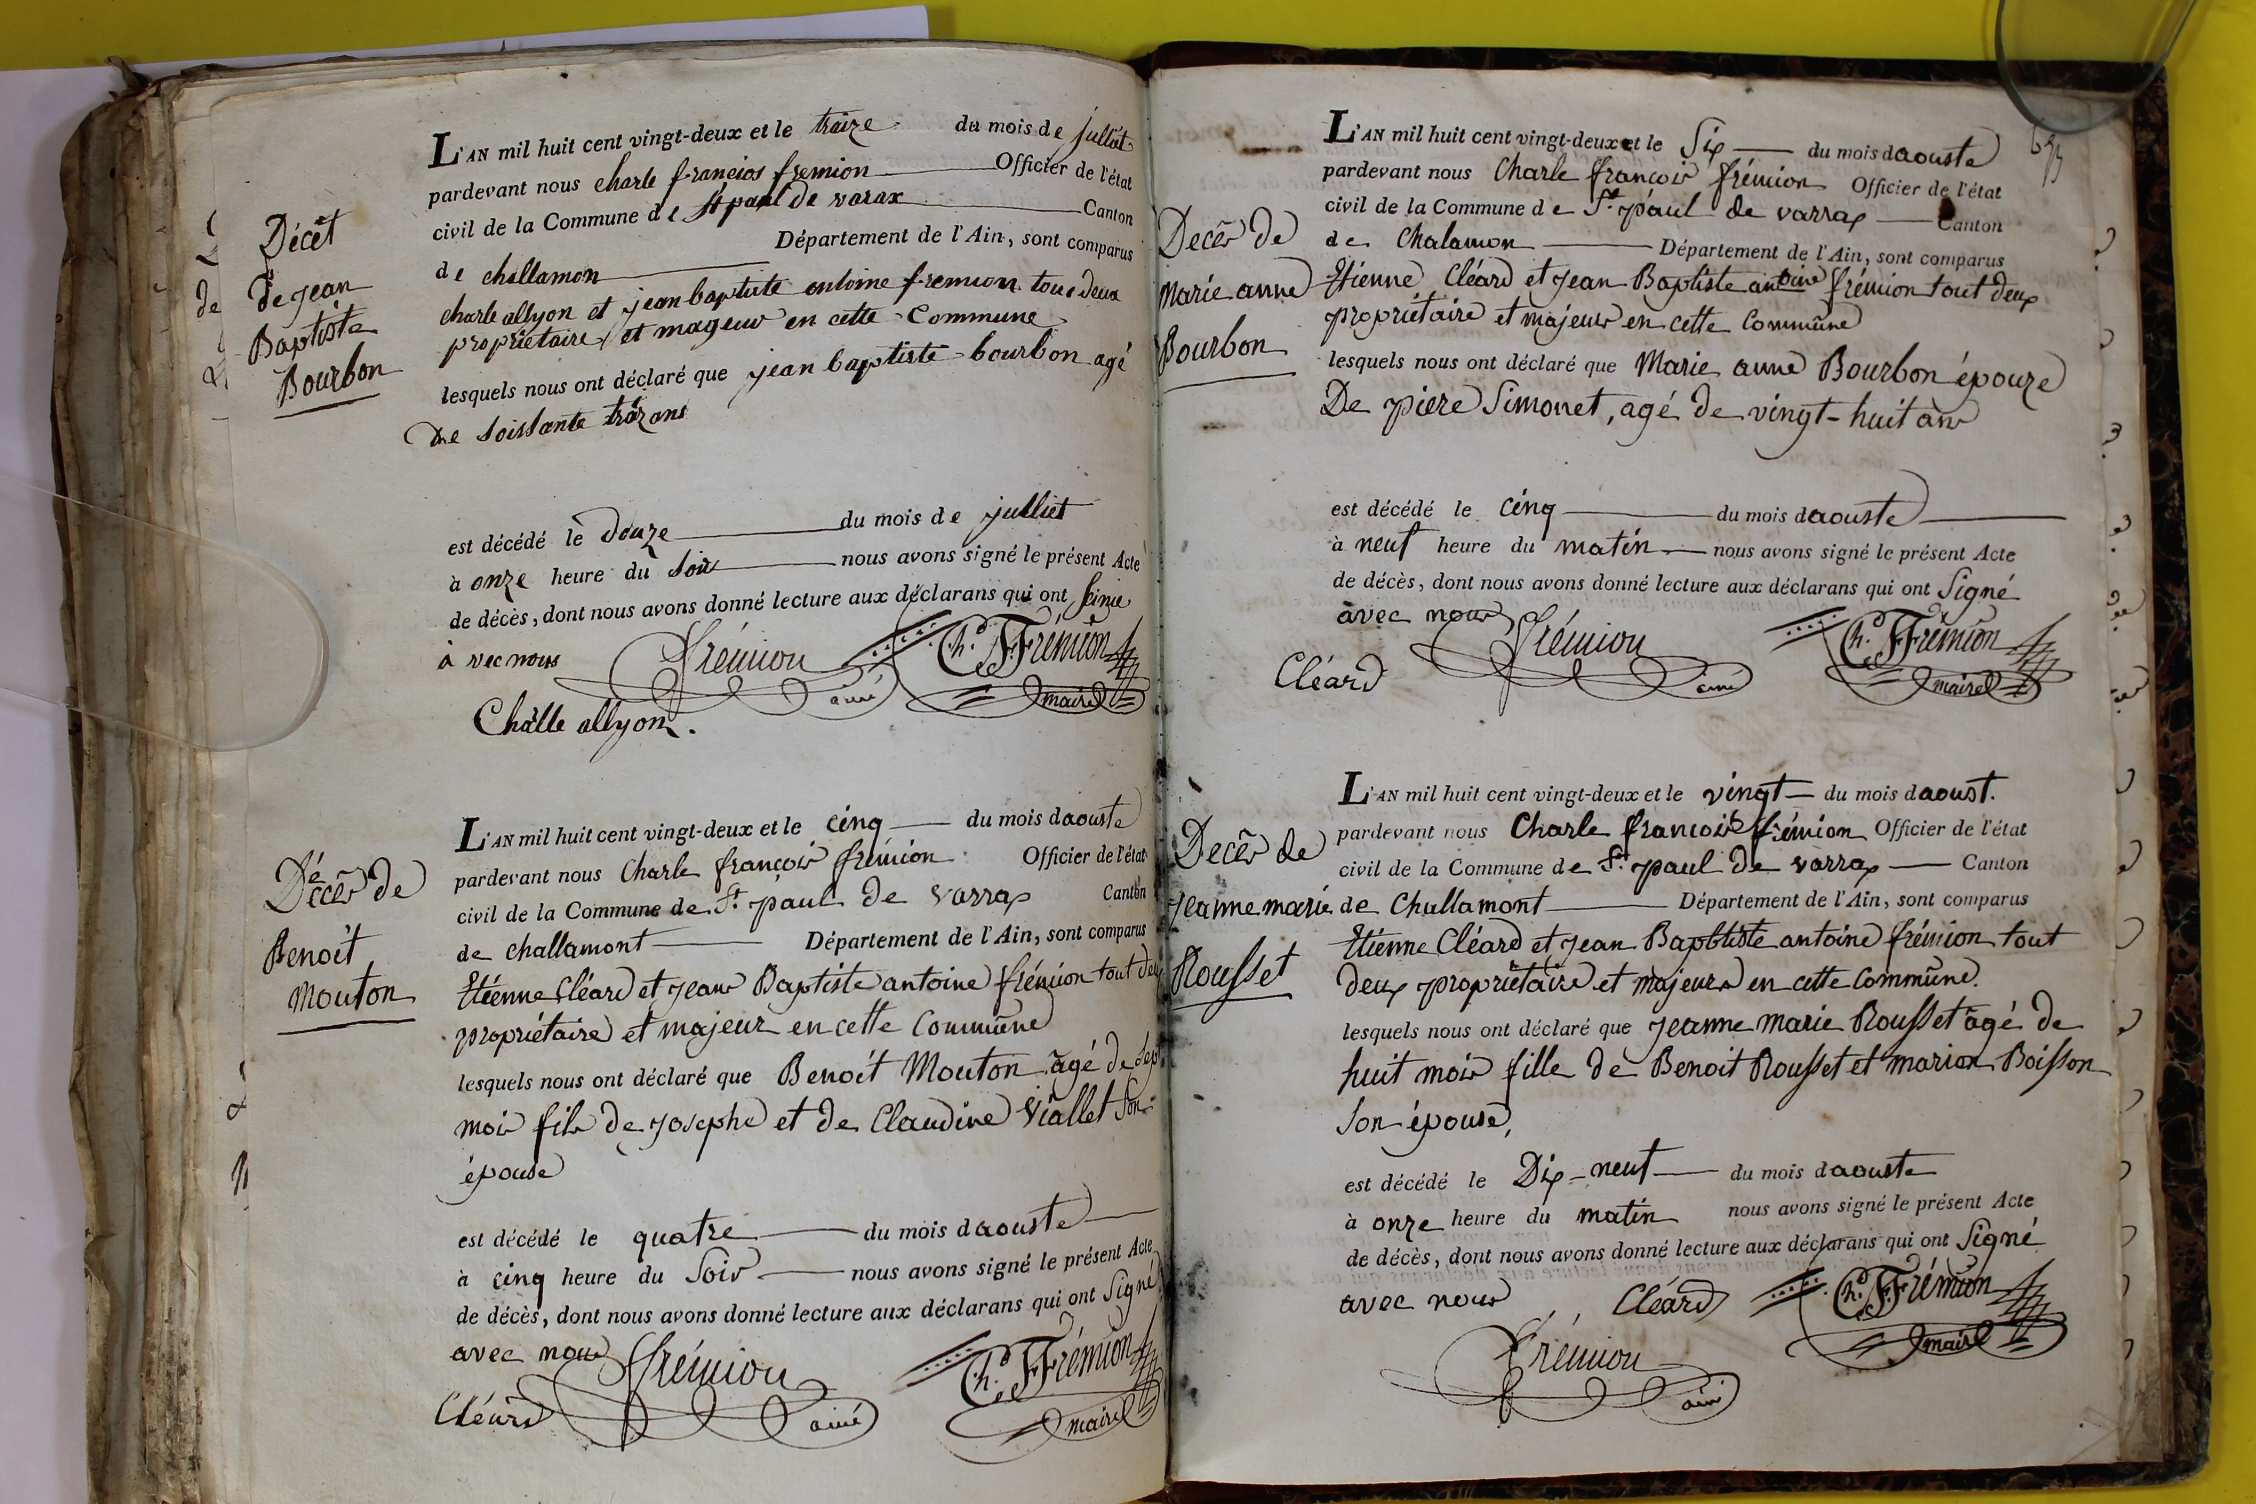 Décèt
de jean
Baptiste
Bourbon
L'AN mil huit cent vingt-deux et le traize du mois de julliet
pardevant nous charle francios fremion Officier de l'état
civil de la Commune de st paul de varax Canton
de challamon Département de l'Ain, sont comparus
charle allyon et jean baptiste antoine fremion tous deux
propriétaire et mageur en cette Commune
lesquels nous ont déclaré que jean baptiste bourbon agé
De soissante trâz ans
est décédé le douze du mois de julliet
à onze heure du soir nous avons signé le présent Acte
de décès, dont nous avons donné lecture aux déclarans qui ont seinie
à vec nous
Frémion ainé
Ch. F. Frémion maire
Charlle allyon.
Décès de
Benoit
Mouton
L'AN mil huit cent vingt-deux et le cinq du mois daouste
pardevant nous Charle françois frémion Officier de l'état
civil de la Commune de St. paul de varrax Canton
de challamont Département de l'Ain, sont comparus
Etienne Cléard et Jean Baptiste antoine frémion tout deux
propriétaire et majeur en cette Commune
lesquels nous ont déclaré que Benoit Mouton âgé de sept
mois fils de Josephe et de Claudine Viallet son
épouse
est décédé le quatre du mois daouste
à cinq heure du Soir nous avons signé le présent Acte
de décès, dont nous avons donné lecture aux déclarans qui ont Signé
avec nous
Frémion ainé
Ch. F. Frémion maire
Cléard
Decès de
Marie anne
Bourbon
L'AN mil huit cent vingt-deux et le Six du mois daouste
pardevant nous Charle françois frémion Officier de l'état
civil de la Commune de St. paul de varrax Canton
de Chalamon Département de l'Ain, sont comparus
Etienne Cléard et Jean Baptiste antoine frémion tout deux
propriétaire et majeur en cette Commune
lesquels nous ont déclaré que Marie anne Bourbon épouze
De piere Simonet, agé de vingt-huit ans
est décédé le cinq du mois daouste
à neuf heure du matin nous avons signé le présent Acte
de décès, dont nous avons donné lecture aux déclarans qui ont Signé
avec nous
Cléard
Frémion ainé
Ch. F. Frémion maire
Decès de
Jeanne marie
Rousset
L'AN mil huit cent vingt-deux et le vingt du mois daoust.
pardevant nous Charle francois frémion Officier de l'état
civil de la Commune de St. paul de varrax Canton
de Challamont Département de l'Ain, sont comparus
Etienne Cléard et Jean Baptbtiste antoine frémion tout
deux propriétaire et majeurs en cette Commune.
lesquels nous ont déclaré que Jeanne marie Rousset âgé de
huit mois fille de Benoit Rousset et marion Boisson
son épouse,
est décédé le Dix-neuf du mois daouste
à onze heure du matin nous avons signé le présent Acte
de décès, dont nous avons donné lecture aux déclarans qui ont Signé
avec nous
Cléard
Ch. F. Frémion maire
Frémion ainé